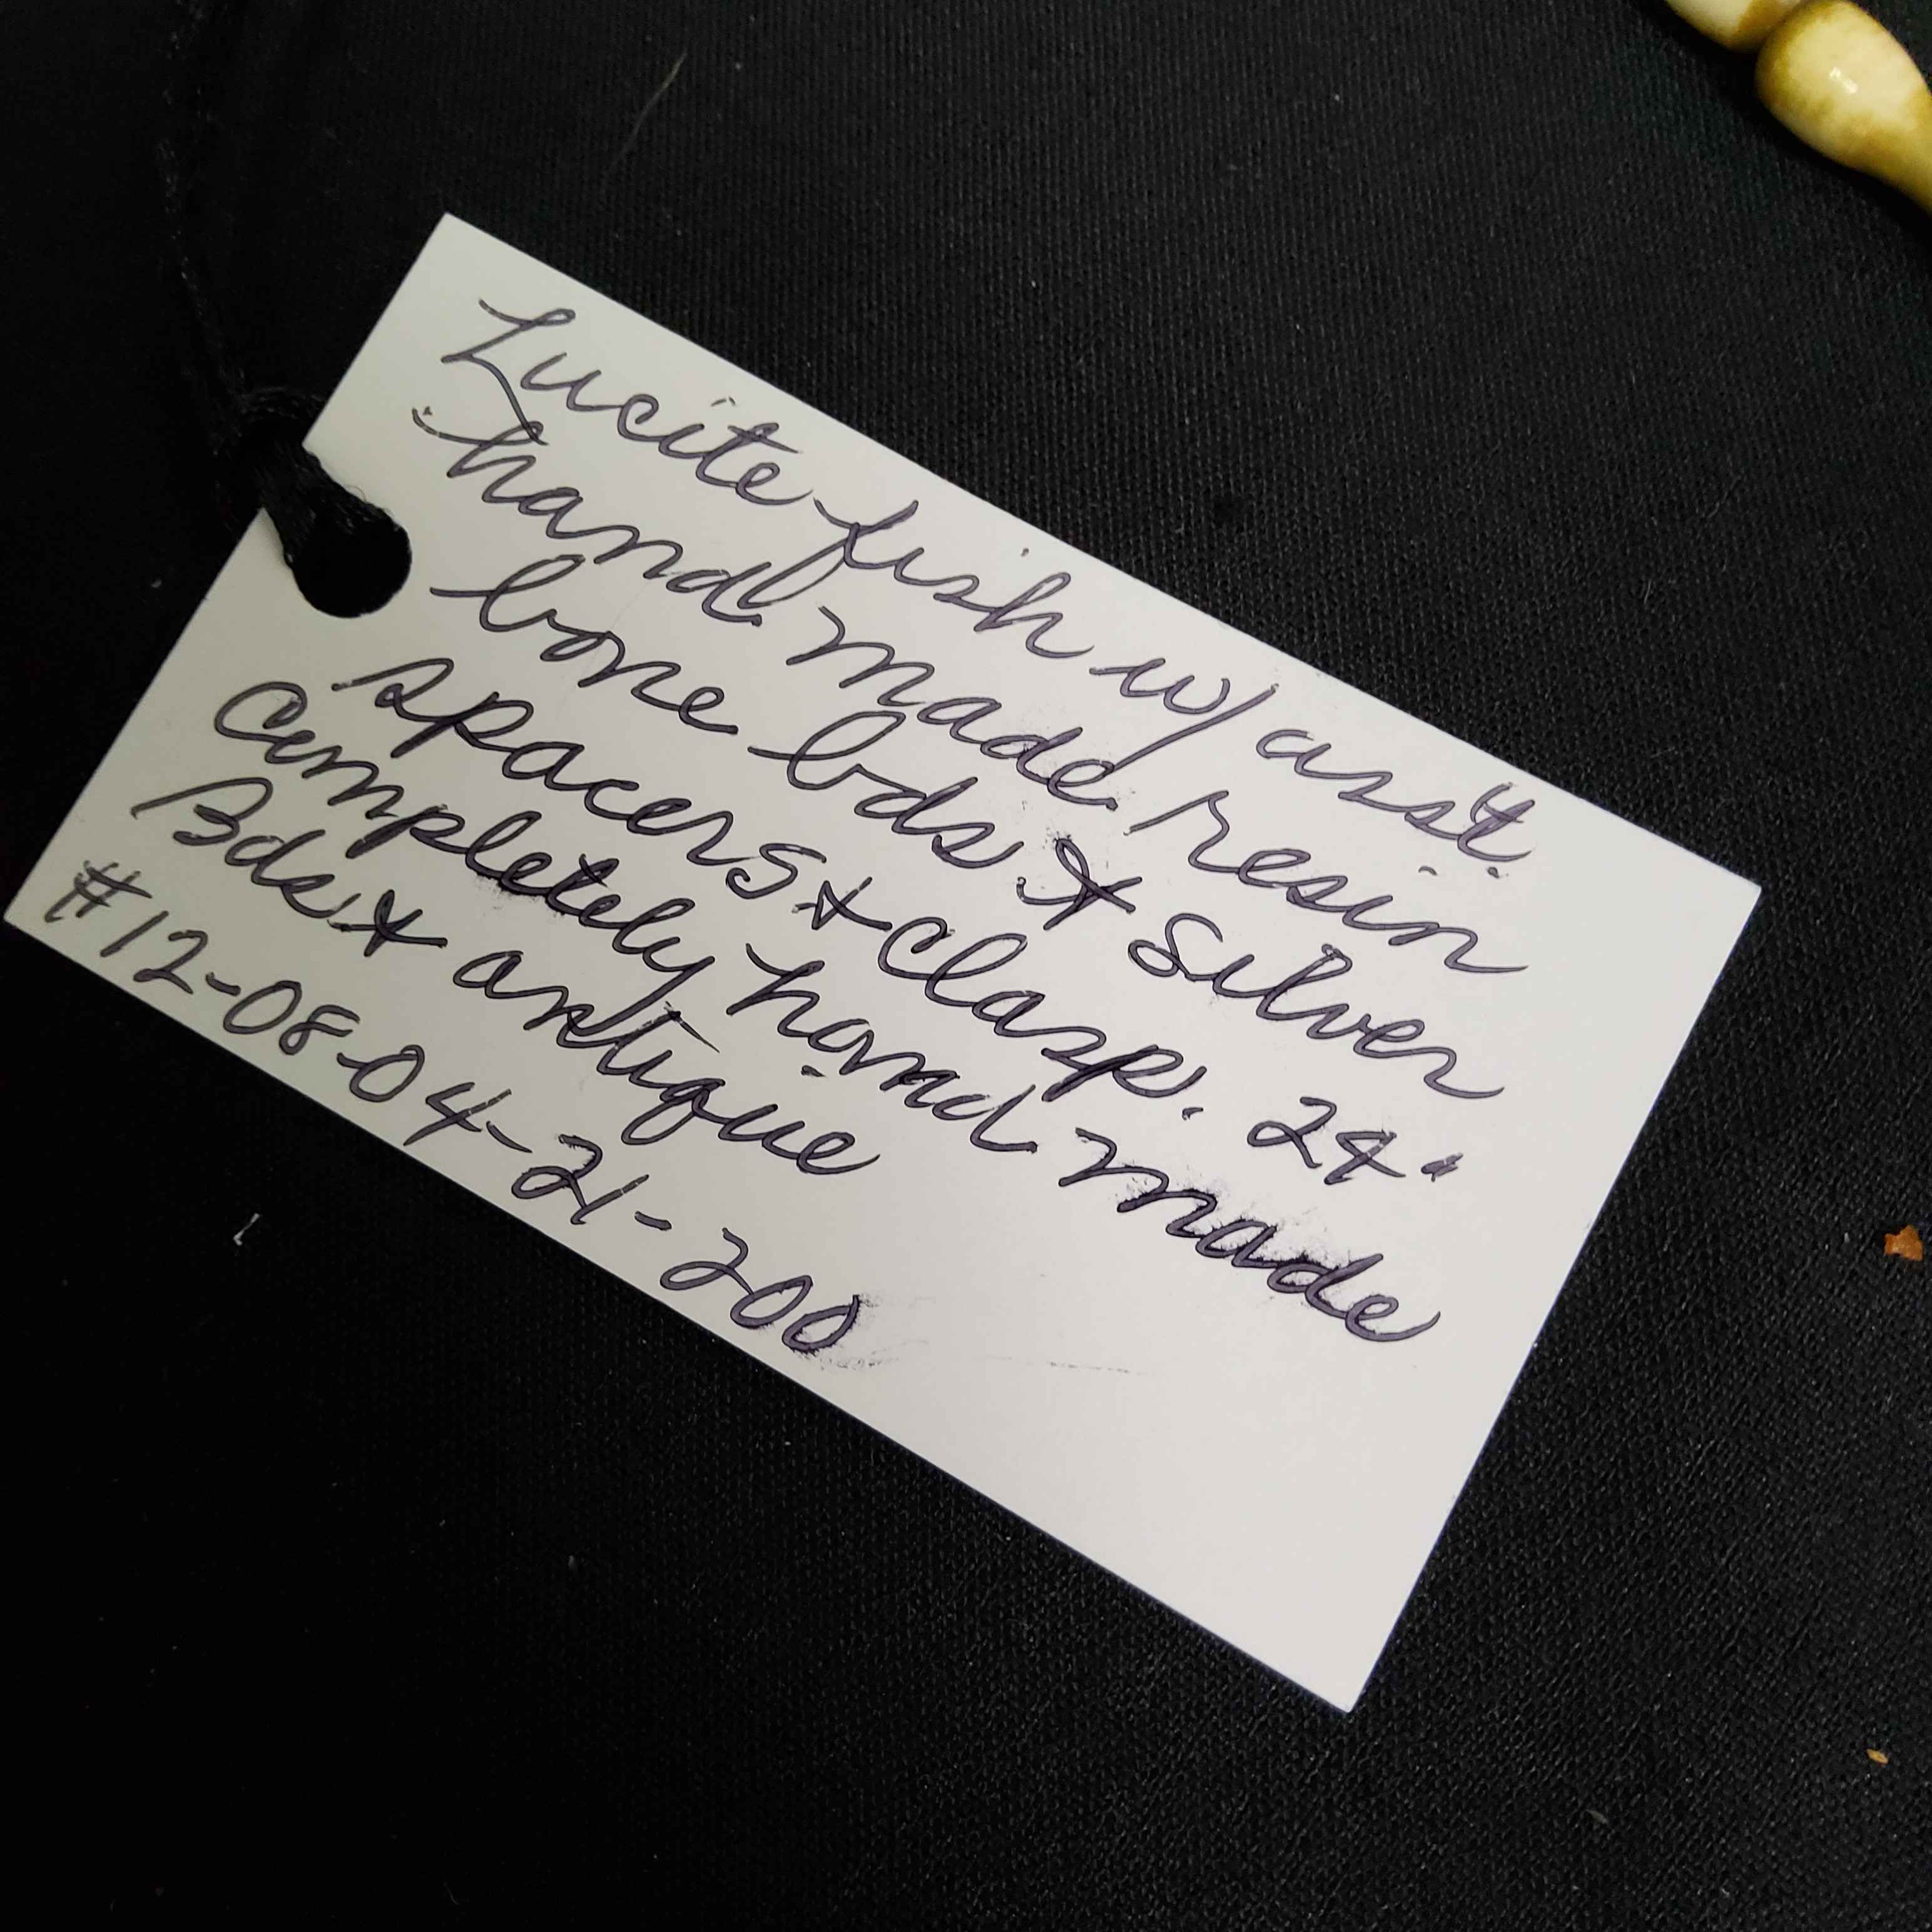 Lucite fish w/ asst.
hand made resin
bone bds & Silver
spacers & clasp. 24"
Completely hand made
Bds & antique
#12-08-04-21-200